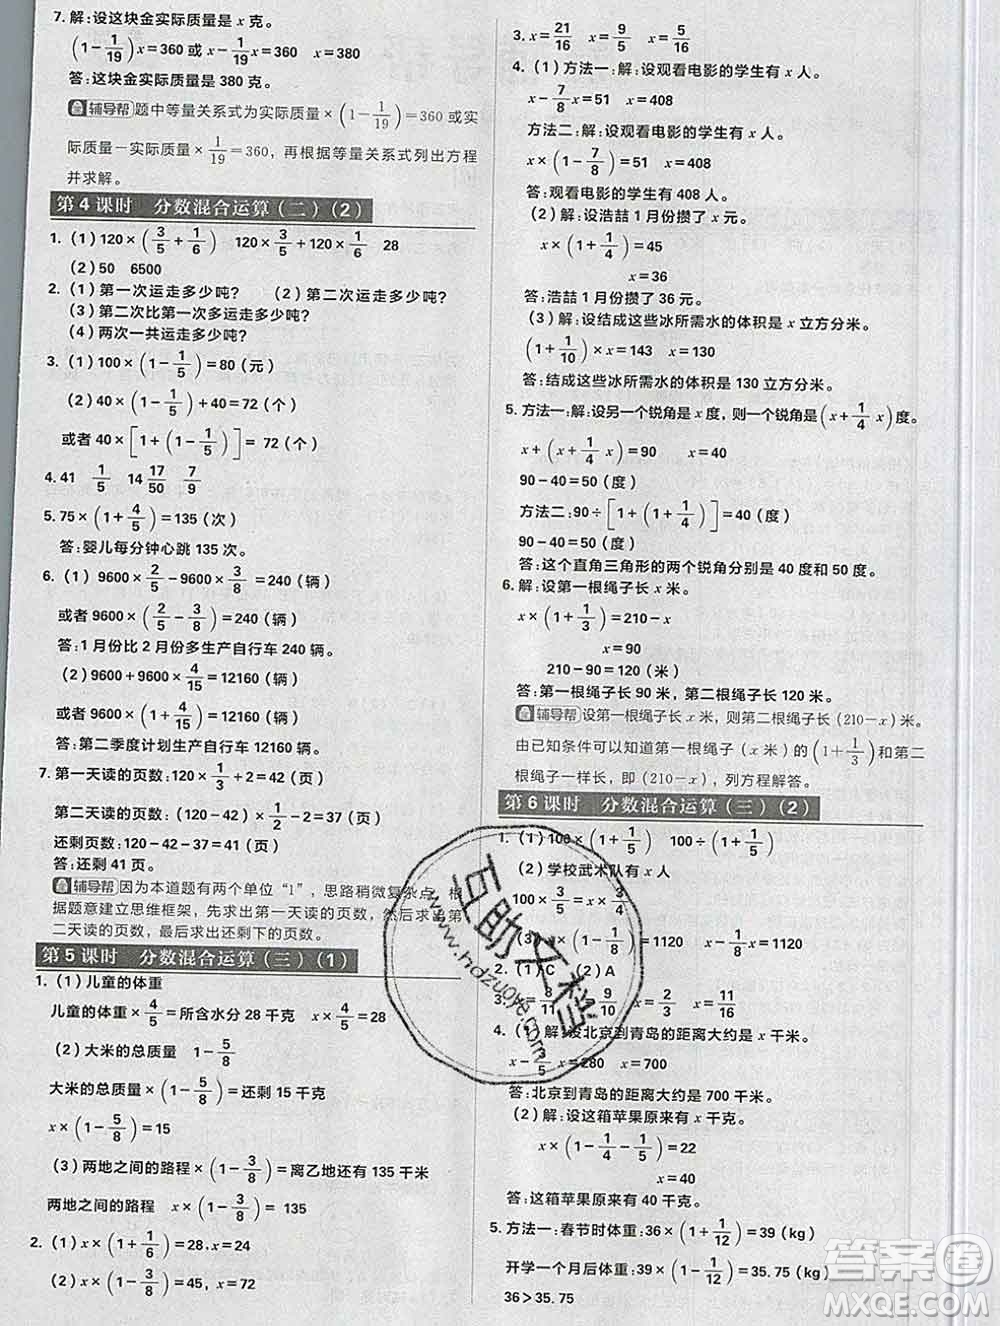 7. 解:设这块金实际质量是 x 克。
(1-1/19)x=360 或 x-1/19x=360　x=380
答:这块金实际质量是 380 克。
辅导帮 题中等量关系式为实际质量×(1-1/19)=360 或实
际质量-实际质量×1/19=360，再根据等量关系式列出方程
并求解。
第 4 课时　分数混合运算(二)(2)
1. (1) 120×(3/5+1/6)　120×3/5+120×1/6　28
(2) 50　6500
2. (1) 第一次运走多少吨?　(2) 第二次运走多少吨?
(3) 第二次比第一次多运走多少吨?
(4) 两次一共运走多少吨?
3. (1) 100×(1-1/5)=80(元)
(2) 40×(1-1/5)+40=72(个)
或者 40×[1+(1-1/5)]=72(个)
4. 41　1/5　14 17/50　7/9
5. 75×(1+4/5)=135(次)
答:婴儿每分钟心跳 135 次。
6. (1) 9600×2/5-9600×3/8=240(辆)
或者 9600×(2/5-3/8)=240(辆)
答:1 月份比 2 月份多生产自行车 240 辆。
(2) 9600+9600×4/15=12160(辆)
或者 9600×(1+4/15)=12160(辆)
答:第二季度计划生产自行车 12160 辆。
7. 第一天读的页数:120×1/3+2=42(页)
第二天读的页数:(120-42)×1/2-2=37(页)
还剩页数:120-42-37=41(页)
答:还剩 41 页。
辅导帮 因为本道题有两个单位“1”，思路稍微复杂点，根
据题意建立思维框架，先求出第一天读的页数，然后求出第
二天读的页数，最后求出还剩下的页数。
第 5 课时　分数混合运算(三)(1)
1. (1) 儿童的体重
儿童的体重×4/5=所含水分 28 千克　x×4/5=28
(2) 大米的总质量　1-5/8
大米的总质量×(1-5/8)=还剩 15 千克
x×(1-5/8)=15
(3) 两地之间的路程×(1-3/8)=离乙地还有 135 千米
两地之间的路程　x×(1-3/8)=135
2. (1) x×(1+1/6)=28，x=24
(2) x×(1-3/8)=45，x=72
3. x=21/16　x=9/5　x=5/16
4. (1) 方法一:解:设观看电影的学生有 x 人。
x-7/8x=51　x=408
方法二:解:设观看电影的学生有 x 人。
x×(1-7/8)=51　x=408
答:观看电影的学生有 408 人。
(2) 解:设浩喆 1 月份攒了 x 元。
x×(1+1/4)=45
x=36
答:浩喆 1 月份攒了 36 元。
(3) 解:设结成这些冰所需水的体积是 x 立方分米。
(1+1/10)×x=143　x=130
答:结成这些冰所需水的体积是 130 立方分米。
5. 方法一:解:设另一个锐角是 x 度，则一个锐角是(x+1/4x)度。
x+(x+1/4x)=90　x=40
90-40=50(度)
方法二:90÷[1+(1+1/4)]=40(度)
90-40=50(度)
答:这个直角三角形的两个锐角分别是 40 度和 50 度。
6. 解:设第一根绳子长 x 米。
x×(1+1/3)=210-x
x=90
210-90=120(米)
答:第一根绳子长 90 米，第二根绳子长 120 米。
辅导帮 设第一根绳子长 x 米，则第二根绳子长(210-x)米。
由已知条件可以知道第一根绳子(x 米)的(1+1/3)和第二
根绳子一样长，即(210-x)，列方程解答。
第 6 课时　分数混合运算(三)(2)
1. (1) 100×(1+1/5)　100÷(1+1/5)
(2) 学校武术队有 x 人
100×3/5=x×3/4
(3) x×(1-1/8)=1120　x-1/8x=1120
2. (1) C　(2) A
3. 8/11　9/10　x=2/3　x=11/16
4. (1) 解:设北京到青岛的距离大约是 x 千米。
x-3/5x=280　x=700
答:北京到青岛的距离大约是 700 千米。
(2) 解:设这箱苹果原来有 x 千克。
x×(1-1/4-1/5)=22
x=40
答:这箱苹果原来有 40 千克。
5. 方法一:春节时体重:36×(1+1/12)=39(kg)
开学一个月后体重:39×(1-1/12)=35.75(kg)
36>35.75
互助文档
www.hdzuoye.com
答案圈
MXQE.COM